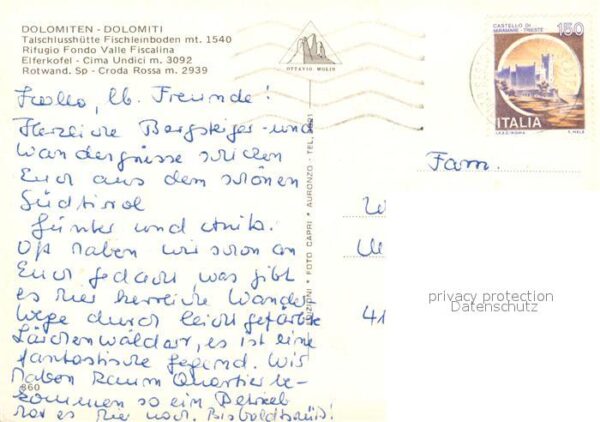 DOLOMITEN - DOLOMITI
Talschlusshütte Fischleinboden mt. 1540
Rifugio Fondo Valle Fiscalina
Elferkofel - Cima Undici m. 3092
Rotwand. Sp - Croda Rossa m. 2939
OTTAVIO MOLIN
CASTELLO DI
MIRAMARE - TRIESTE
150
ITALIA
I.P.Z.S. ROMA
Hallo, lb. Freunde!
Herzliche Bergsteiger- und
Wandergrüsse schicken
Euch aus dem schönen
Südtirol
Günter und
Oft haben wir schon an
Euch gedacht, was gibt
es hier herrliche Wander
wege durch leicht gefärbte
Lärchenwälder, es ist eine
fantastische Gegend. Wir
haben kaum Quartier be-
kommen so ein Betrieb
war es hier noch.
860
EDIZIONI * FOTO CAPRI * AURONZO - TEL.
Fam.
41
privacy protection
Datenschutz